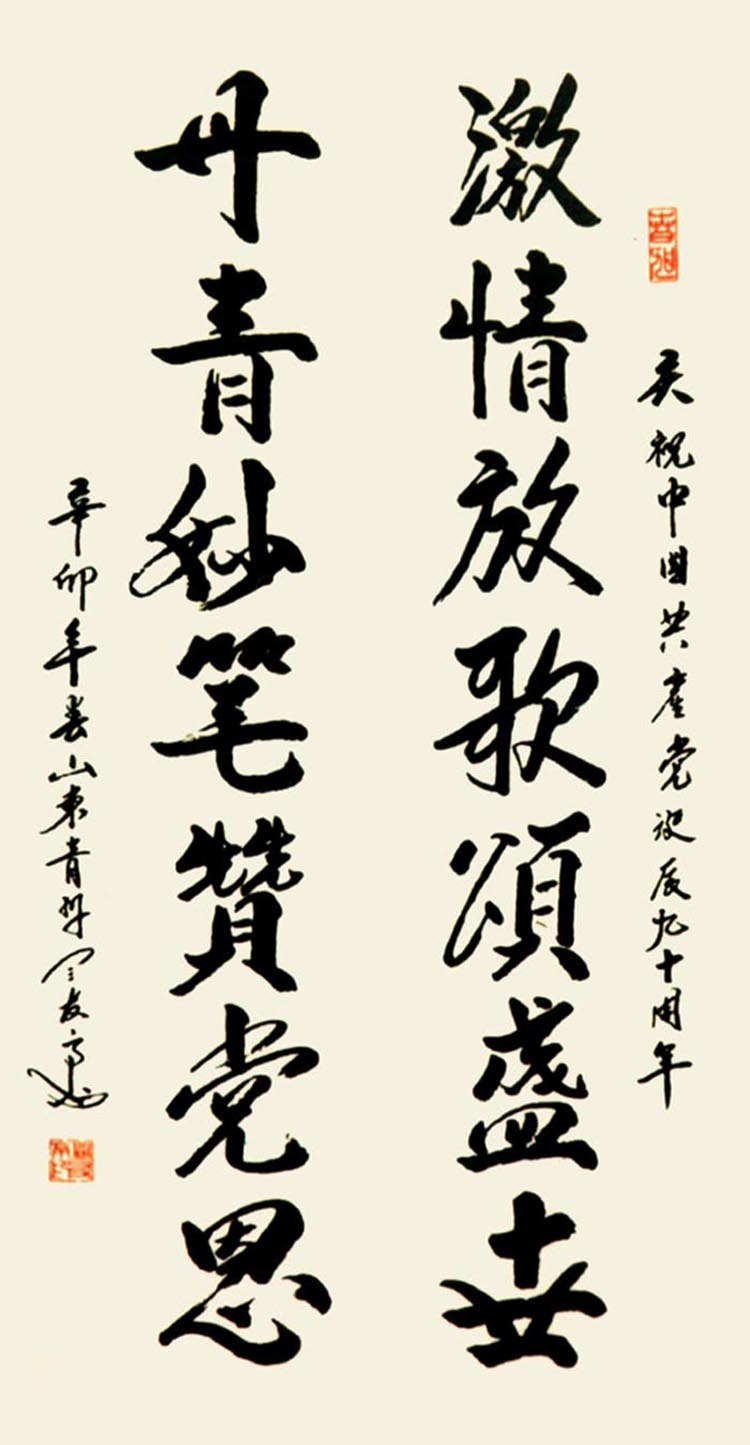 庆祝中国共產党诞辰九十周年
激情放歌頌盛世
丹青妙笔贊党恩
辛卯年春山東青州